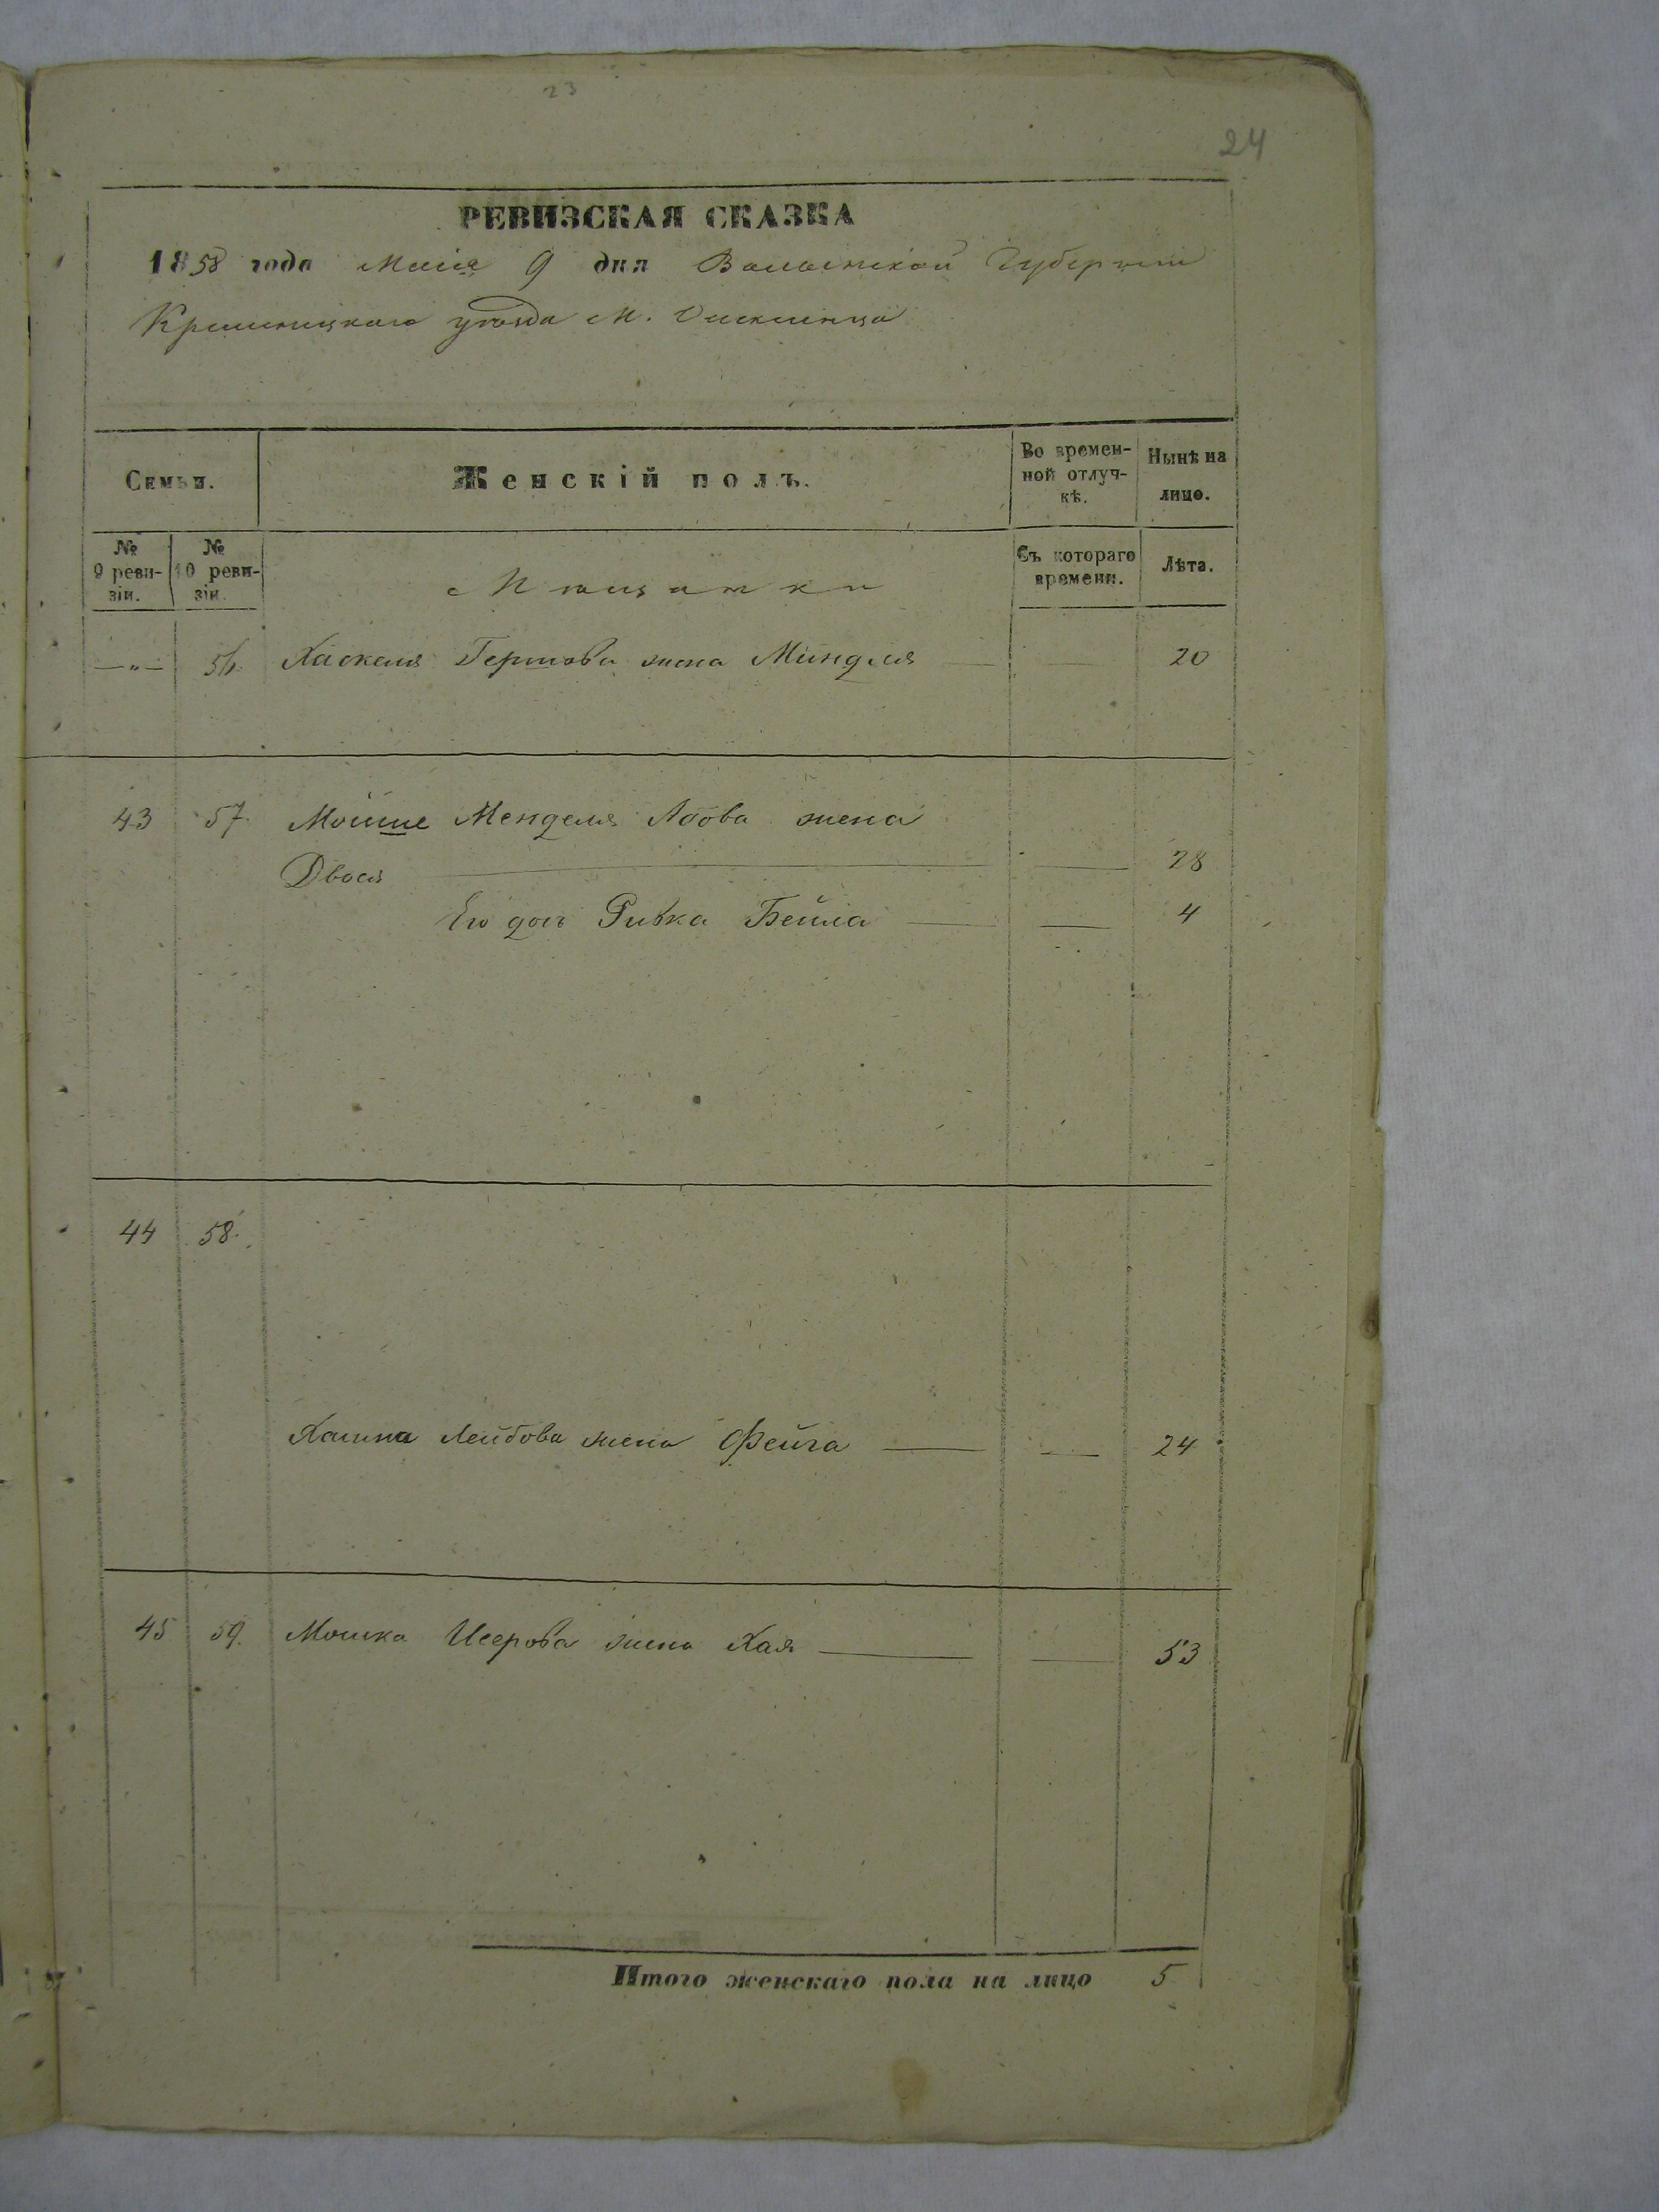 23
24
РЕВИЗСКАЯ СКАЗКА
1858 года Маія 9 дня Волынской Губерніи
Кременецкаго уѣзда М.
Семьи. Женскій полъ. Во времен- ной отлуч- кѣ. Нынѣ на лицо.
№ 9 реви- зіи. № 10 реви- зіи. Мѣщанки Съ котораго времени. Лѣта.
56. Хаскеля жена Миндля 20
43 57. Мошие Менделя жена
Двося 28
Его дочь Ривка Бейла 4
44 58.
Лейбова жена Фейга 24
45 59. Мошка Исерова жена Хая 53
Итого женскаго пола на лицо 5